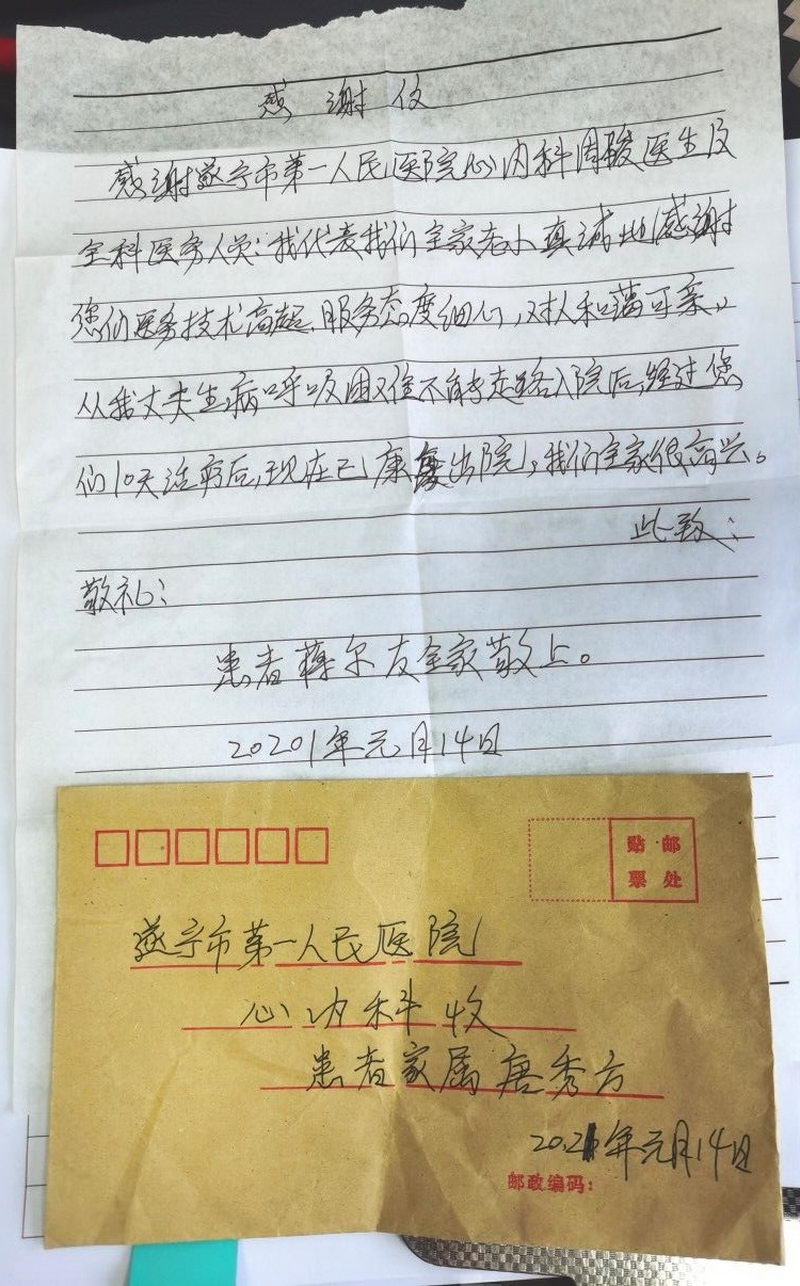 感谢仪
感谢遂宁市第一人民医院心内科周骏医生及
全科医务人员：我代表我们全家老小真诚地感谢
您们医务技术高超、服务态度细心，对人和蔼可亲。
从我丈夫生病呼吸困难不能走路入院后，经过您
们10天治疗后，现在已康复出院，我们全家很高兴。
此致：
敬礼：
患者蒋尔友全家敬上。
20201年元月14日
贴邮
票处
遂宁市第一人民医院
心内科收
患者家属唐秀方
2021年元月14日
邮政编码：